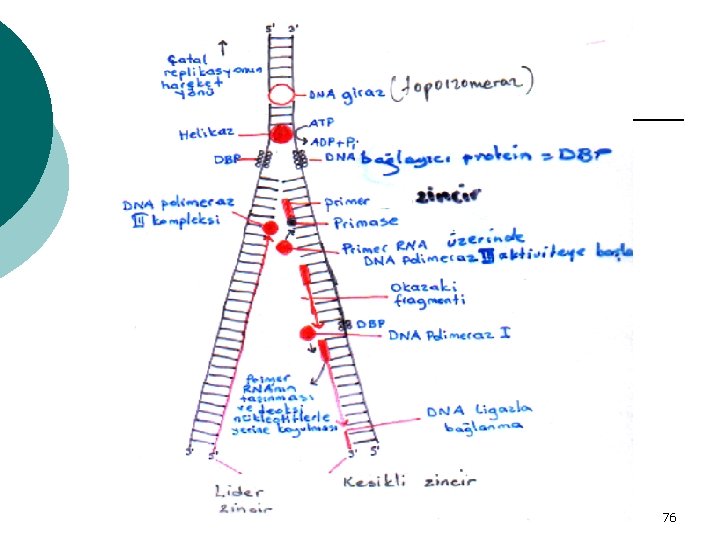 5' 3'
Çatal
replikasyonun
hareket
yönü
DNA giraz (topoizomeraz)
Helikaz
ATP
ADP+Pi
DBP
DNA bağlayıcı protein = DBP
zincir
DNA polimeraz
III kompleksi
primer
Primase
Primer RNA üzerinde
DNA polimeraz III aktiviteye başla
Okazaki
fragmenti
DBP
DNA Polimeraz I
Primer
RNA'nın
taşınması
ve deoksi
nükleotitlerle
yerine koyulması
DNA Ligazla
bağlanma
3' 5'
3' 5'
Lider
zincir
Kesikli zincir
76